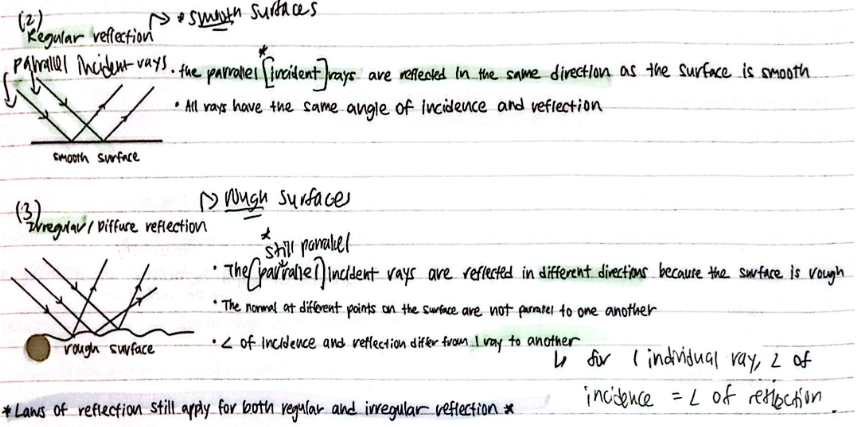 (2)
Regular reflection ↳ * smooth surfaces
parallel incident rays
• the parralel [incident]* rays are reflected in the same direction as the surface is smooth
• All rays have the same angle of incidence and reflection
smooth surface
(3)
Irregular / Diffuse reflection ↳ Rough surfaces
* still parralel
• The [parralel] incident rays are reflected in different directions because the surface is rough
• The normal at different points on the surface are not parralel to one another
• ∠ of incidence and reflection differ from 1 ray to another
↳ for 1 individual ray, ∠ of
incidence = ∠ of reflection.
rough surface
* Laws of reflection still apply for both regular and irregular reflection *